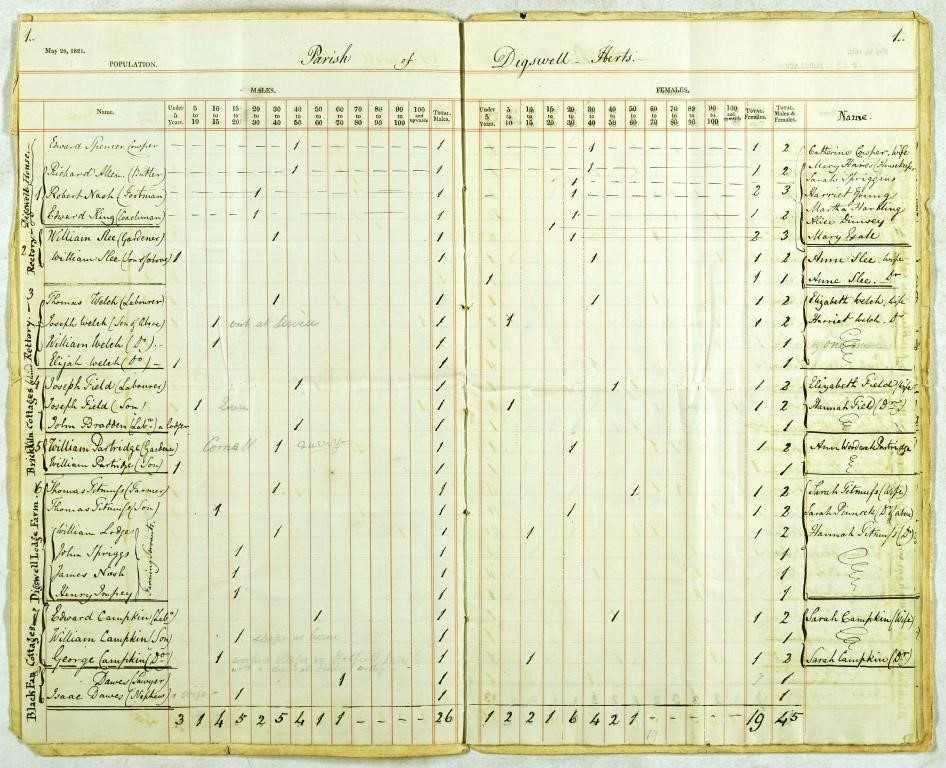 1.. 1..
May 28, 1821.
POPULATION.
Parish of Digswell - Herts. -
MALES. FEMALES.
Name. Under 5 Years. 5 to 10 10 to 15 15 to 20 20 to 30 30 to 40 40 to 50 50 to 60 60 to 70 70 to 80 80 to 90 90 to 100 100 and upwards TOTAL Males. Under 5 Years. 5 to 10 10 to 15 15 to 20 20 to 30 30 to 40 40 to 50 50 to 60 60 to 70 70 to 80 80 to 90 90 to 100 100 and upwards TOTAL Females. TOTAL Males & Females. Name.
Digswell House
Edward Spencer Cowper 1 1 1 1 2 Catherine Cowper, Wife
Richard Allen (Butler) 1 1 1 1 2 Mary Hames (Housekeeper
Sarah Spriggins
1 Robert Nash (Footman) 1 1 1 1 2 3 Harriet Young
Martha Harkling
Edward King (Coachman) 1 1 1 1 1 2 Alice Dimsey
2 Rectory
William Slee (Gardener) 1 1 1 2 3 Mary Gale
William Slee (Son of above) 1 1 1 1 2 Anne Slee. Wife
1 1 1 Anne Slee. Dr
3 Rectory
Thomas Welch (Labourer) 1 1 1 1 2 Elizabeth Welch, Wife
Joseph Welch (Son of Above) 1 out at service 1 1 1 2 Harriet Welch. Dr
William Welch (Do.) - 1 1 1
Elijah Welch (Do) - 1 1 1
Brickkiln Cottages
4 Joseph Field (Labourer) 1 1 1 1 2 Elizabeth Field (Wife
Joseph Field (Son) 1 1 1 1 2 Hannah Field (Dr)
John Bradden (Labr.) a Lodger 1 1 1
5 William Partridge (Gardener) Cornell 1 query 1 1 1 2 Ann Partridge
William Partridge (Son) 1 1 1
6 Digswell Lodge Farm
Thomas Titmuss (Farmer) 1 1 1 1 2 Sarah Titmuss (Wife)
Thomas Titmuss (Son) 1 1 1 1 2 Sarah Pinnock
William Lodge 1 1 1 1 2 Hannah Titmuss (Dr)
John Spriggs 1 1 1
James Nash 1 1 1
Henry Impey 1 1 1
Farming Servants
Black Fan Cottages
Edward Campkin (Labr) 1 1 1 1 2 Sarah Campkin (Wife)
William Campkin (Son) 1 sleeps at home 1 1
George Campkin (Do) 1 1 1 1 2 Sarah Campkin (Dr)
Dawes (Sawyer) 1 1 1
Isaac Dawes (Nephew) 1 1 1
3 1 4 5 2 5 4 1 1 26 1 2 2 1 6 4 2 1 19 45